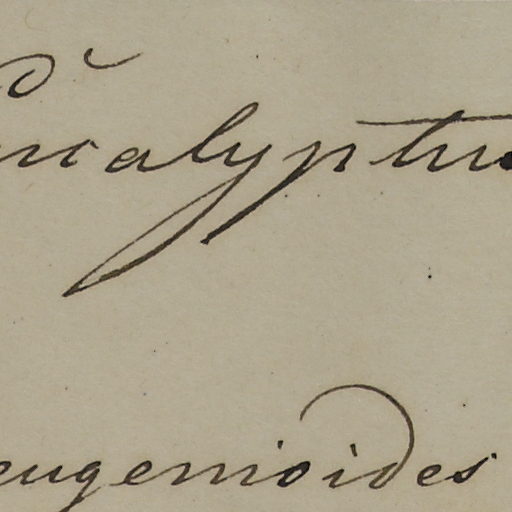 Eucalyptus
eugenioides